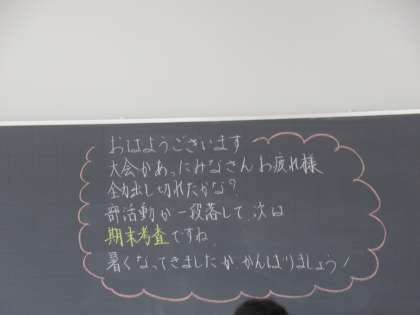 おはようございます
大会があったみなさん お疲れ様
全力出し切れたかな?
部活動が一段落して、次は
期末考査ですね。
暑くなってきましたが、がんばりましょう!